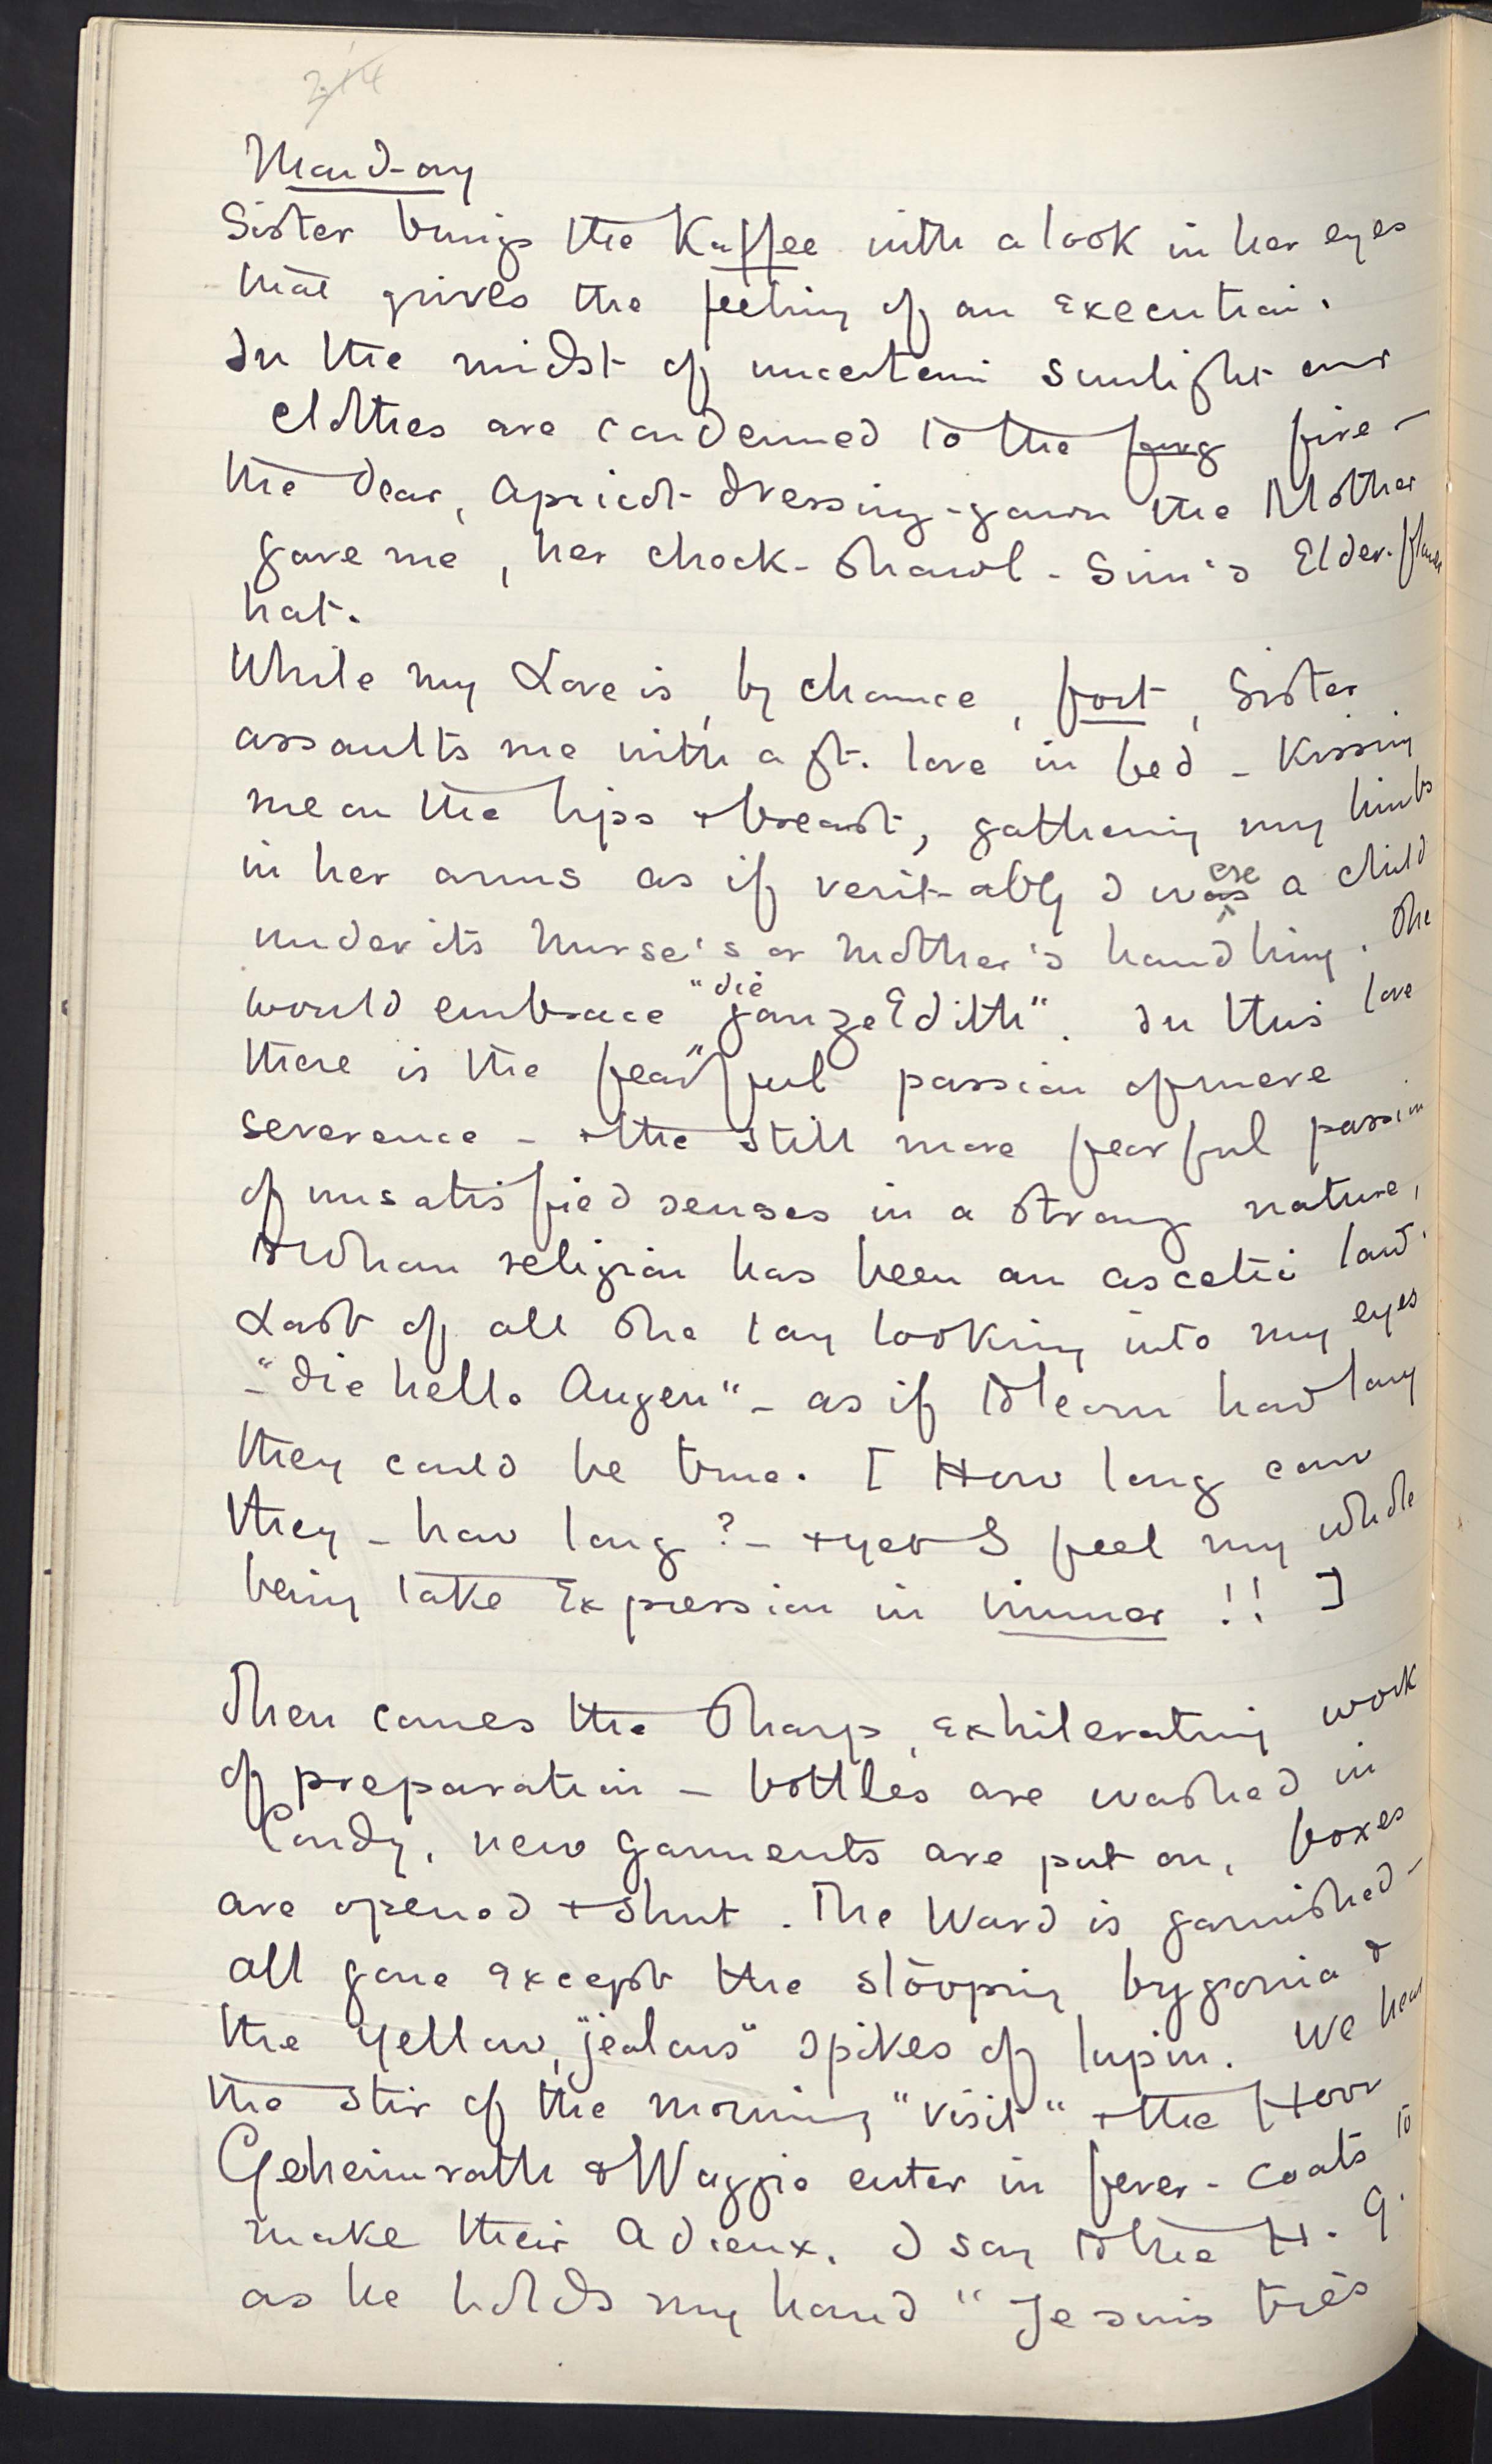 Mond-ay
Sister brings the Kaffee with a look in her eyes
that gives the feeling of an execution.
In the midst of uncertain sunlight our
clothes are condemned to the fire –
the dear, apricot dressing-gown the Mother
gave me, her check-shawl – Sim's Elder-flower
hat.
While my Love is, by chance, fort, Sister
assaults me with a ft. love in bed – kissing
me on the lips & breast, gathering my limbs
in her arms as if verit-ably I were a child
under its nurse's or mother's handling. She
would embrace "die ganze Edith". In this love
there is the fearful passion of mere
severence – & the still more fearful passion
of unsatisfied senses in a strong nature,
to whom religion has been an ascetic law.
Last of all she lay looking into my eyes
– "die helle Augen" – as if to learn how long
they could be true. [ How long can
they – how long? – & yet I feel my whole
being take expression in immer !! ]
Then comes the sharp, exhilerating work
of preparation – bottles are washed in
Condy, new garments are put on, boxes
are opened & shut. The Ward is garnished –
all gone except the stooping bygonia &
the yellow, "jealous" spikes of lupin. We hear
the stir of the morning "visit" & the Herr
Geheimrath & Waggie enter in fever-coats to
make their adieux. I say to the H. G.
as he holds my hand "Je suis très